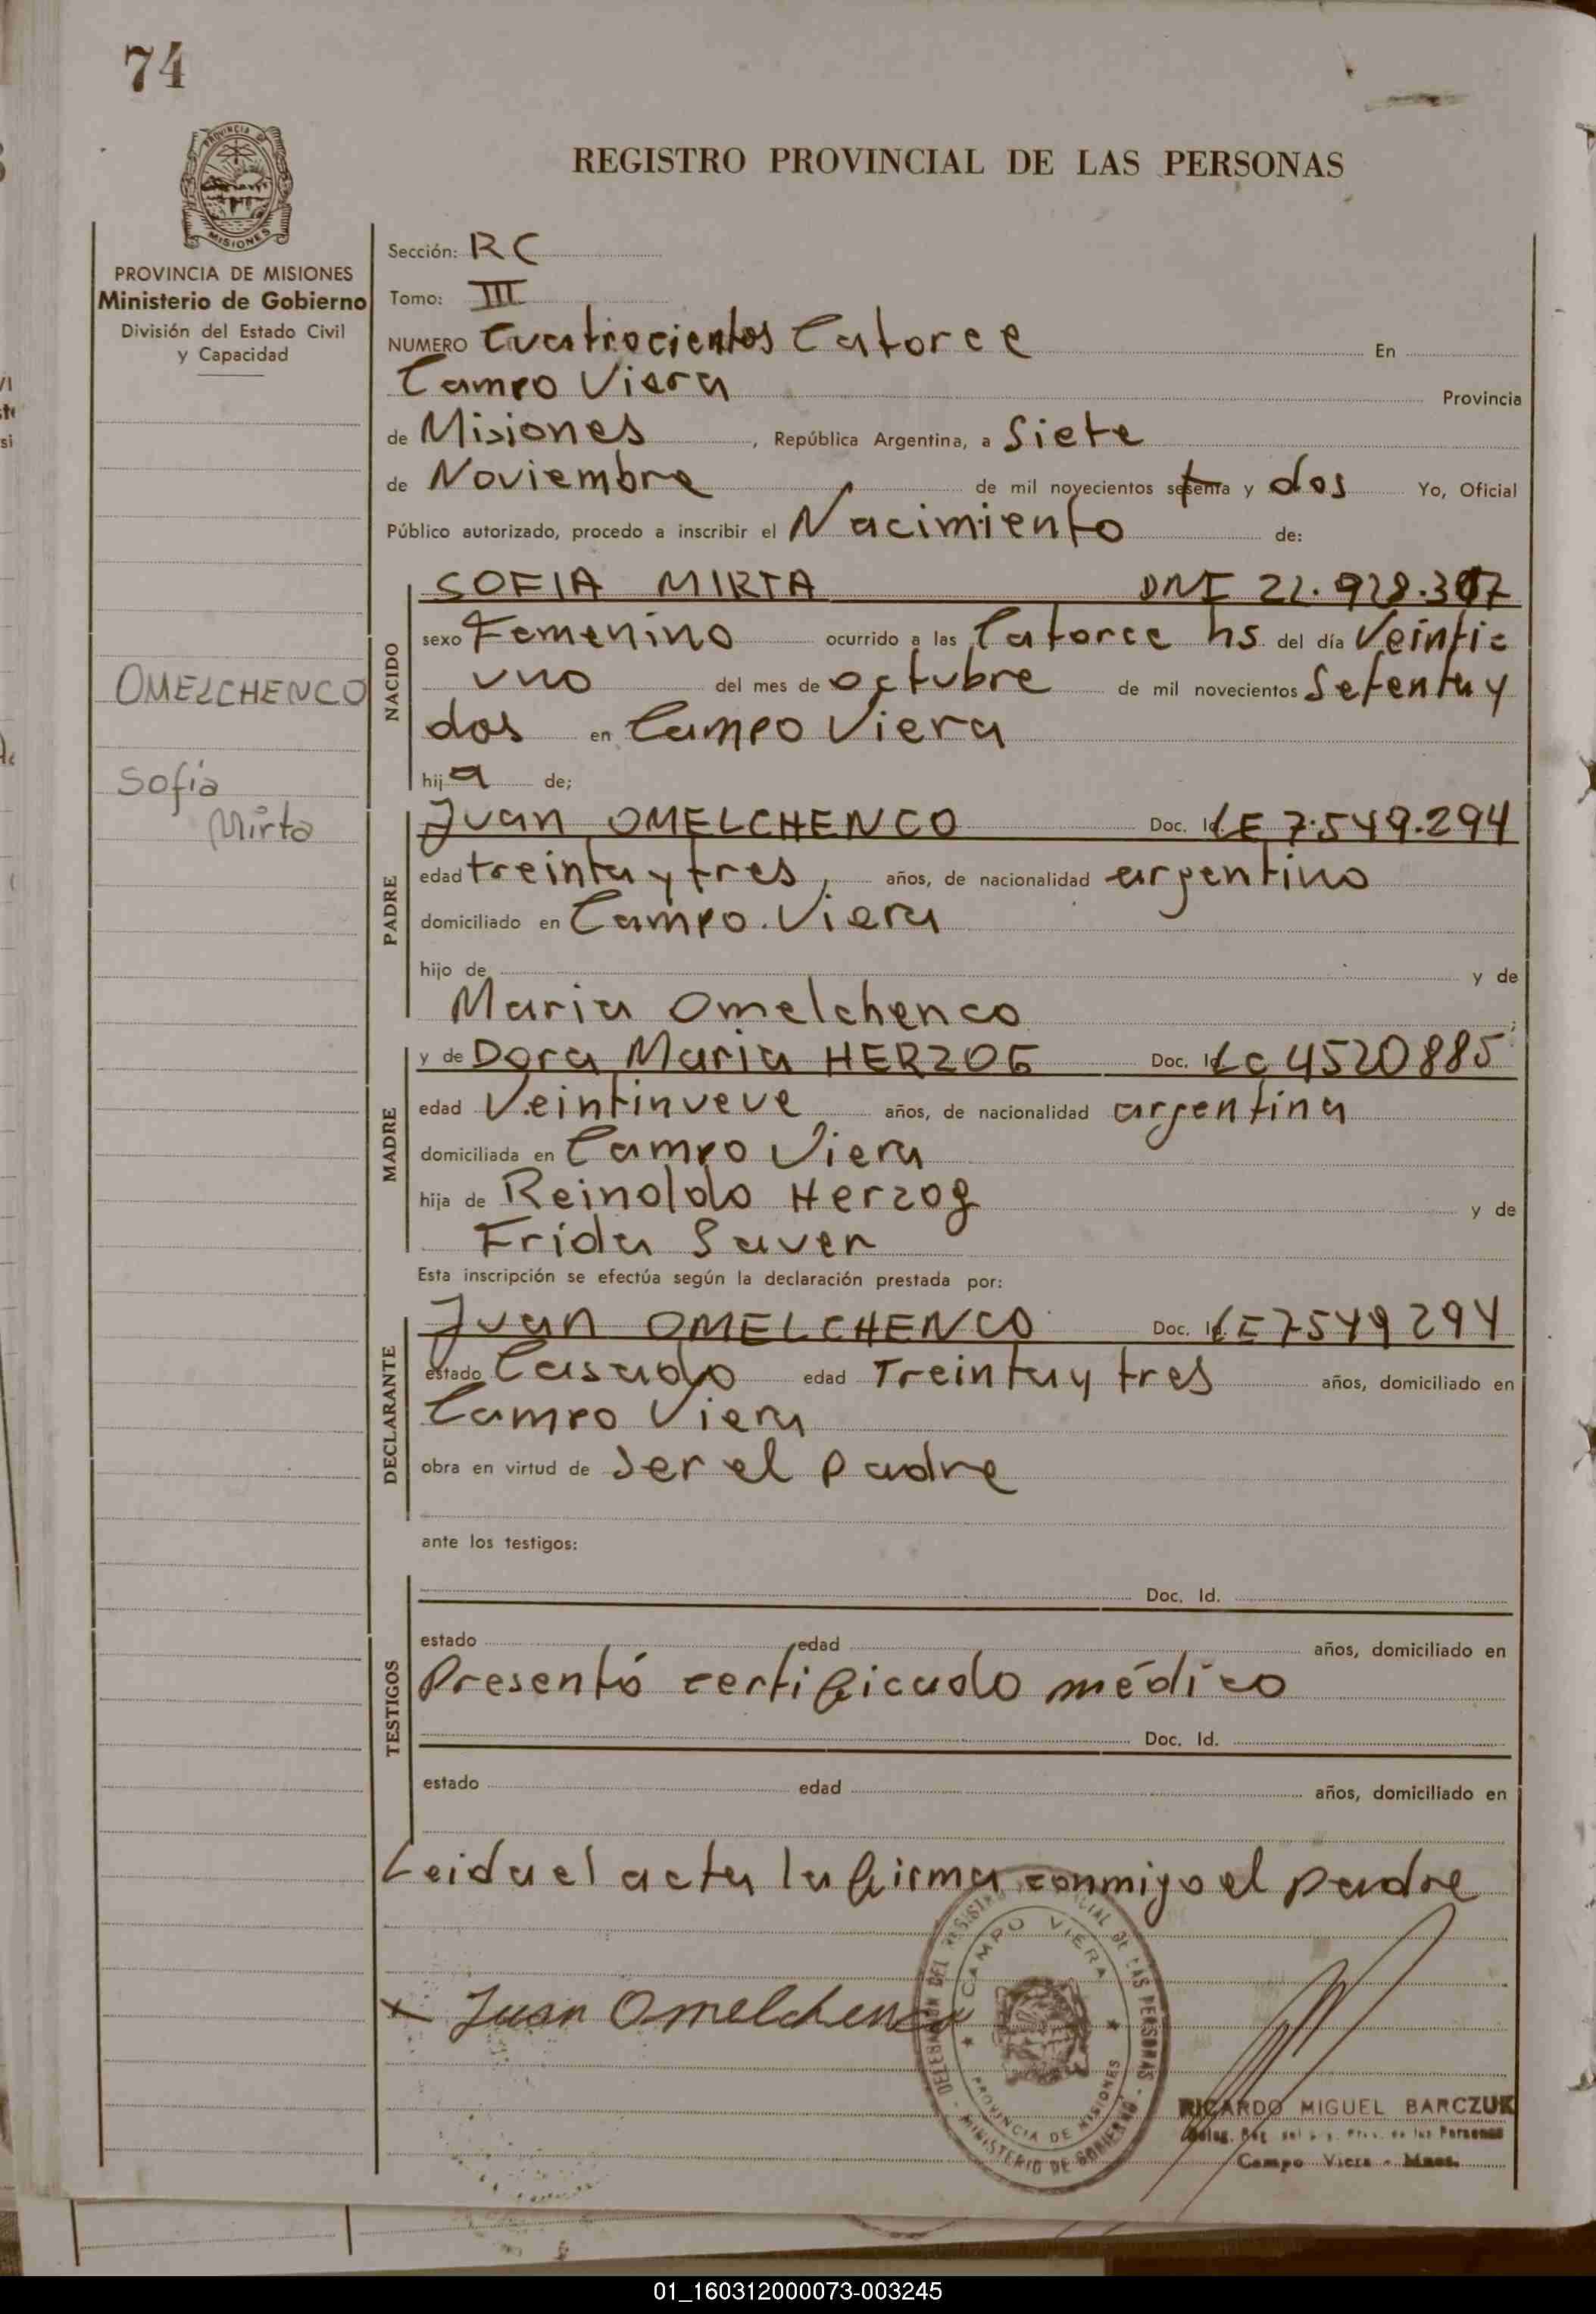 74
PROVINCIA DE
MISIONES
REGISTRO PROVINCIAL DE LAS PERSONAS
PROVINCIA DE MISIONES
Ministerio de Gobierno
División del Estado Civil
y Capacidad
OMELCHENCO
Sofia
Mirta
Sección: RC
Tomo: III
NUMERO Cuatrocientos Catorce En
Campo Viera Provincia
de Misiones, República Argentina, a Siete
de Noviembre de mil novecientos setenta y dos Yo, Oficial
Público autorizado, procedo a inscribir el Nacimiento de:
NACIDO
SOFIA MIRTA DNI 22.928.307
sexo Femenino ocurrido a las Catorce hs. del día Veinti=
uno del mes de octubre de mil novecientos Setenta y
dos en Campo Viera
hija de;
PADRE
Juan OMELCHENCO Doc. Id LE 7.549.294
edad treinta y tres, años, de nacionalidad argentino
domiciliado en Campo Viera
hijo de y de
Maria Omelchenco ;
MADRE
y de Dora Maria HERZOG Doc. Id LC 4520885
edad Veintinueve años, de nacionalidad argentina
domiciliada en Campo Viera
hija de Reinoldo Herzog y de
Frida Sauer
Esta inscripción se efectúa según la declaración prestada por:
DECLARANTE
Juan OMELCHENCO Doc. Id LE 7549294
estado Casado edad Treinta y tres años, domiciliado en
Campo Viera
obra en virtud de ser el padre
ante los testigos:
TESTIGOS
Doc. Id.
estado edad años, domiciliado en
Presentó certificado médico
Doc. Id.
estado edad años, domiciliado en
Leida el acta la firma conmigo el padre
x Juan Omelchenco
DELEGACION DEL REGISTRO PROVINCIAL DE LAS PERSONAS
CAMPO VIERA
PROVINCIA DE MISIONES
MINISTERIO DE GOBIERNO
RICARDO MIGUEL BARCZUK
Deleg. Reg. de las Personas
Campo Viera - Mnes.
01_160312000073-003245